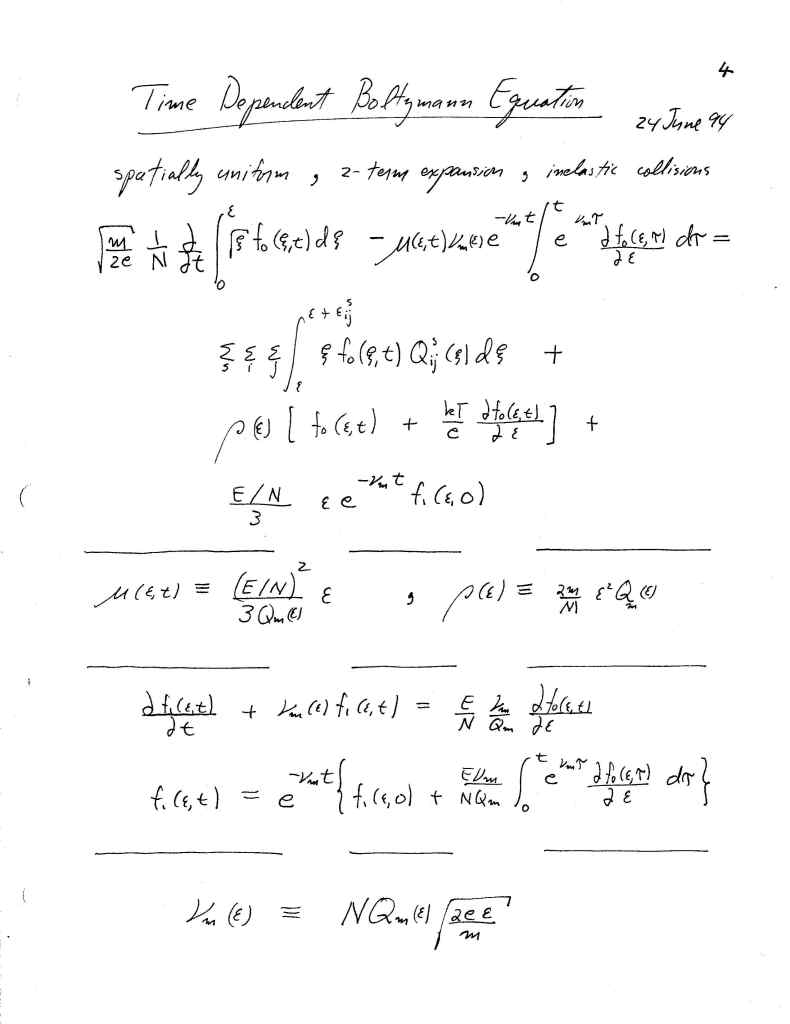 4
Time Dependent Boltzmann Equation
24 June 94
spatially uniform , 2-term expansion , inelastic collisions
√(m/2e) 1/N ∂/∂t ∫₀^ε √ξ f₀(ξ,t) dξ - μ(ε,t) ν_m(ε) e^(-ν_m t) ∫₀^t e^(ν_m τ) ∂f₀(ε,τ)/∂ε dτ =
Σ_s Σ_i Σ_j ∫_ε^(ε + ε_ij^s) ξ f₀(ξ,t) Q_ij^s(ξ) dξ +
ρ(ε) [ f₀(ε,t) + kT/e ∂f₀(ε,t)/∂ε ] +
(E/N)/3 ε e^(-ν_m t) f₁(ε,0)
μ(ε,t) ≡ (E/N)²/(3Q_m(ε)) ε , ρ(ε) ≡ 2m/M ε² Q_m(ε)
∂f₁(ε,t)/∂t + ν_m(ε) f₁(ε,t) = E/N ν_m/Q_m ∂f₀(ε,t)/∂ε
f₁(ε,t) = e^(-ν_m t) { f₁(ε,0) + Eν_m/(NQ_m) ∫₀^t e^(ν_m τ) ∂f₀(ε,τ)/∂ε dτ }
ν_m(ε) ≡ NQ_m(ε) √(2eε/m)